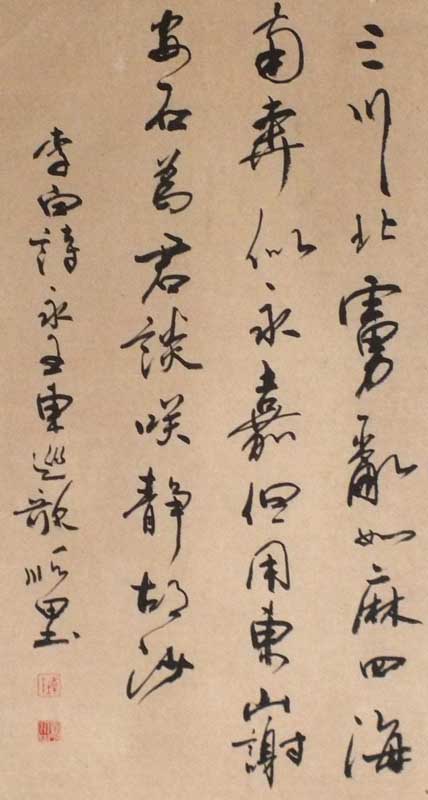 三川北虜亂如麻四海
南奔似永嘉但用東山謝
安石為君談咲靜胡沙
李白詩永王東巡歌順里